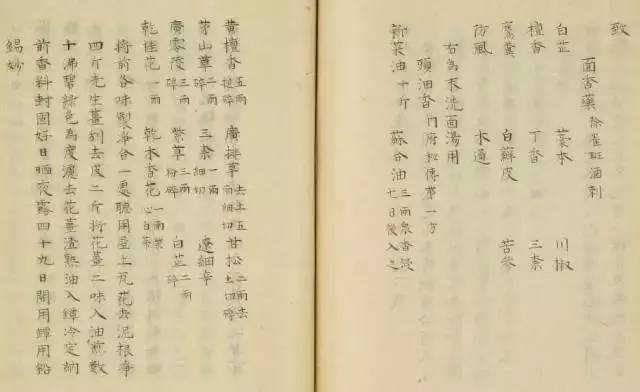 致
面香藥 除雀斑酒刺
白芷 藁本 川椒
檀香 丁香 三柰
鷹糞 白蘚皮 苦參
防風 木通
右為末洗面湯用
頭油香 內府秘傳第一方
新菜油十斤 蘇合油 三兩眾香浸七日後入之
黃檀香 五兩搥碎 廣排草 去土五兩細切 甘松 二兩去土切碎
茅山草 二兩碎 三柰 一兩細切 遼細辛
廣零陵 三兩碎 紫草 三兩粉碎 白芷 二兩碎
乾桂花 一兩 乾木香花 一兩紫心白茶
將前各味製淨合一處聽用屋上瓦花去泥根淨
四斤老生薑刮去皮二斤將花薑二味入油煎數
十沸碧綠色為度濾去花薑渣熟油入罈冷定納
前香料封固好日晒夜露四十九日開用罈用鉛
錫妙